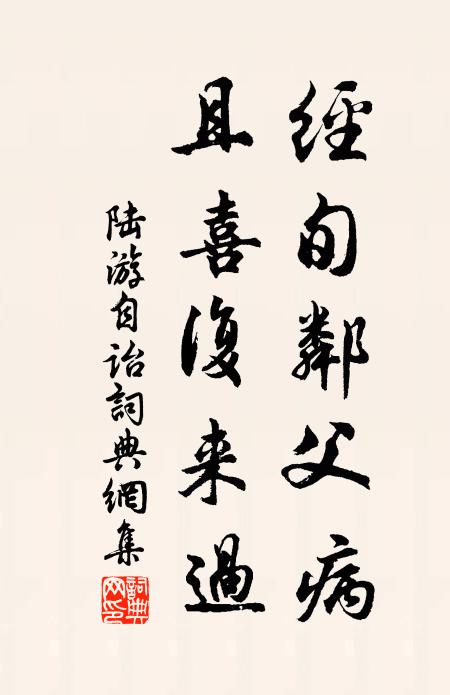 經旬鄰父病
且喜復来過
陆游自詒詞典網集
詞典網印